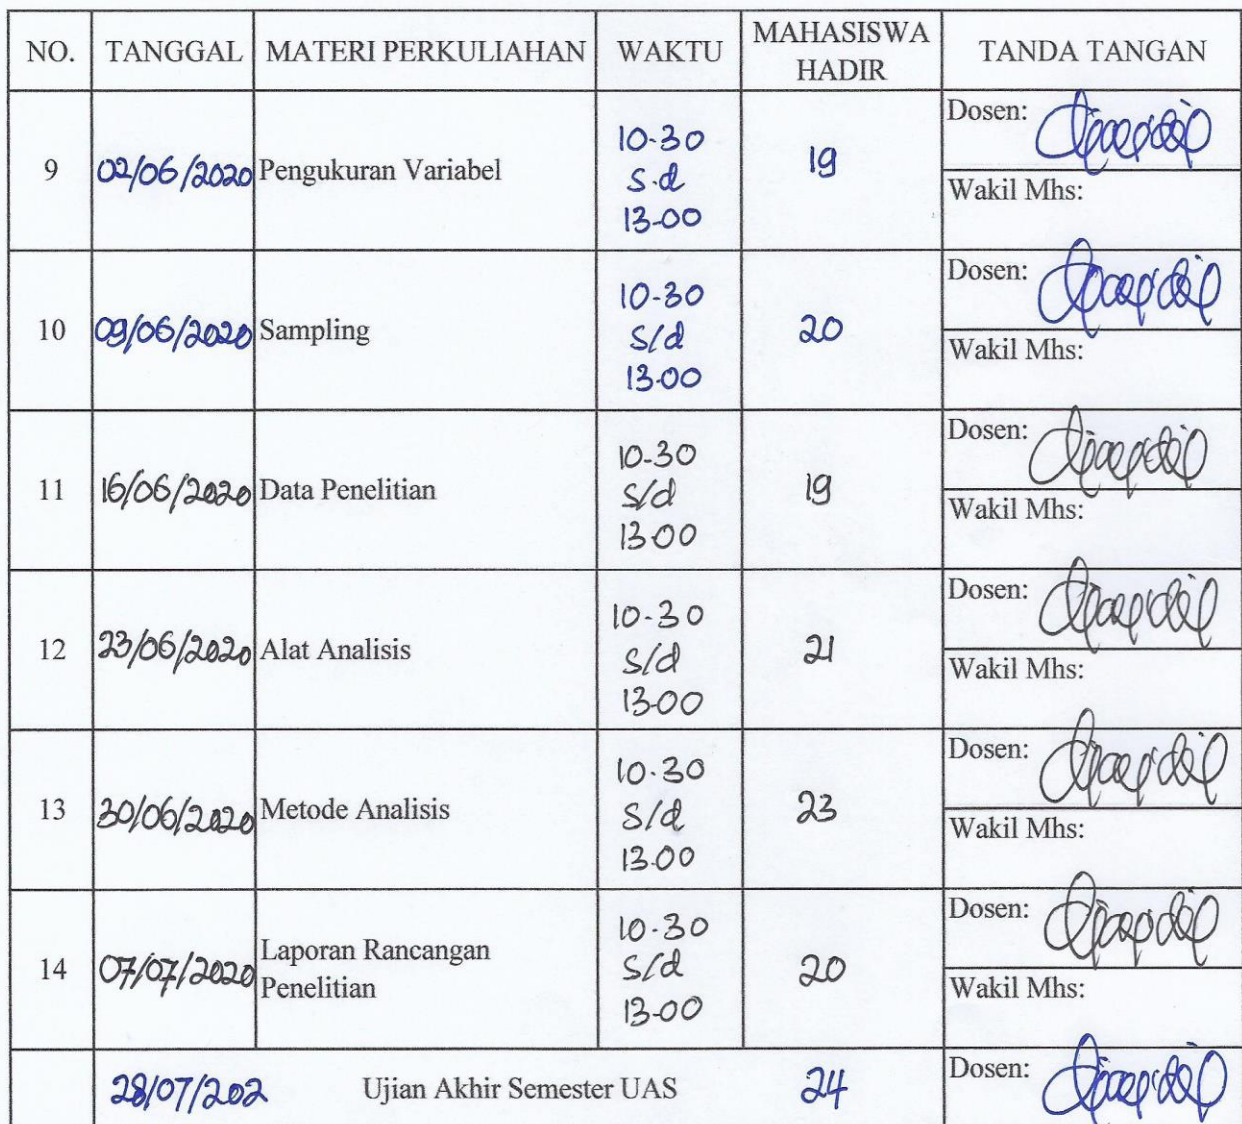 NO. TANGGAL MATERI PERKULIAHAN WAKTU MAHASISWA HADIR TANDA TANGAN
9 02/06/2020 Pengukuran Variabel 10-30 s.d 13-00 19 Dosen:
Wakil Mhs:
10 09/06/2020 Sampling 10-30 s/d 13-00 20 Dosen:
Wakil Mhs:
11 16/06/2020 Data Penelitian 10-30 s/d 13-00 19 Dosen:
Wakil Mhs:
12 23/06/2020 Alat Analisis 10-30 s/d 13-00 21 Dosen:
Wakil Mhs:
13 30/06/2020 Metode Analisis 10-30 s/d 13-00 23 Dosen:
Wakil Mhs:
14 07/07/2020 Laporan Rancangan Penelitian 10-30 s/d 13-00 20 Dosen:
Wakil Mhs:
28/07/202 Ujian Akhir Semester UAS 24 Dosen: